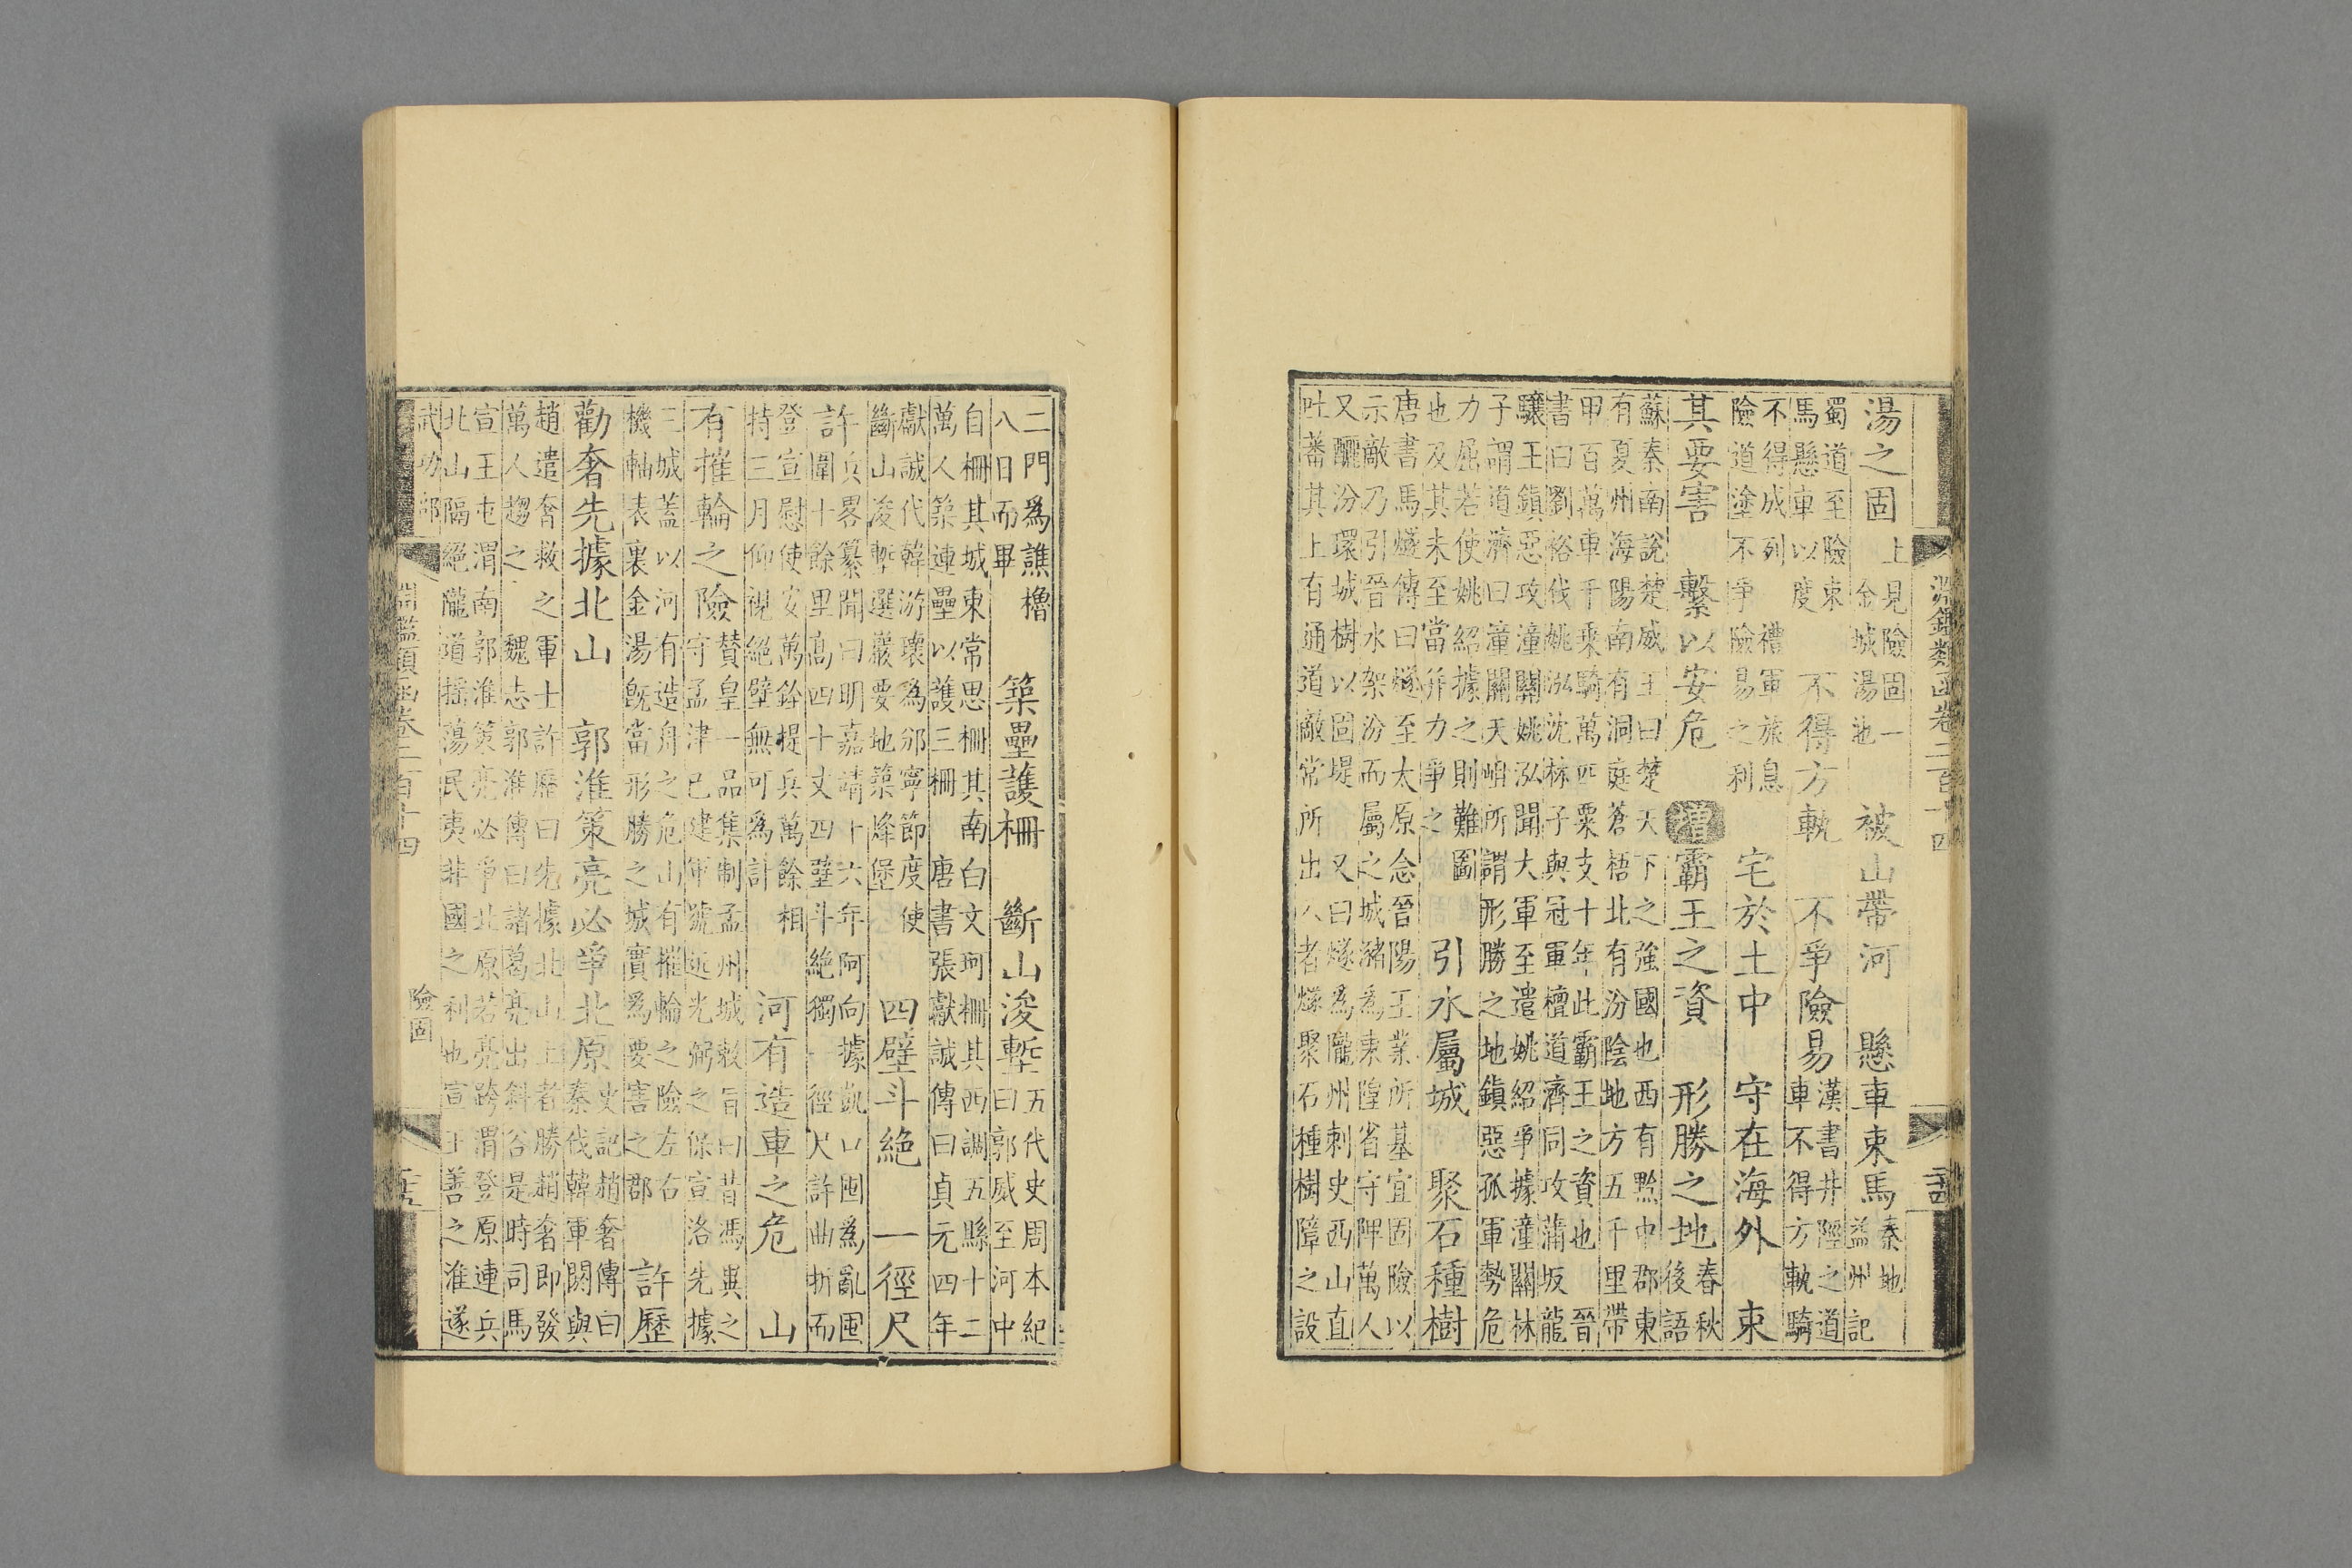 淵鑑類函卷二百十四
湯之固 上見險固一
金城湯池 被山帶河 懸車束馬 秦地
益州記
蜀道至險束
馬懸車以度 不得方軌 不爭險易 漢書井陘之道
車不得方軌騎
不得成列 禮軍旅息
險道塗不爭險易之利 宅於土中 守在海外 束
其要害 繫以安危 增 霸王之資 形勝之地 春秋
後語
蘇秦南說楚威王曰楚天下之強國也西有黔中郡東
有夏州海陽南有洞庭蒼梧北有汾陰地方五千里帶
甲百萬車千乘騎萬匹粟支十年此霸王之資也 晉
書曰劉裕伐姚泓沈林子與冠軍檀道濟同攻蒲坂龍
驤王鎮惡攻潼關姚泓聞大軍至遣姚紹爭據潼關林
子謂道濟曰潼關天岨所謂形勝之地鎮惡孤軍勢危
力屈若使姚紹據之則難圖
也及其未至當并力爭之 引水屬城 聚石種樹
唐書馬燧傳曰燧至太原念晉陽王業所基宜固險以
示敵乃引晉水架汾而屬之城瀦爲東隍省守陴萬人
又釃汾環城樹以固堤 又曰燧爲隴州刺史西山直
吐蕃其上有通道敵常所出入者燧聚石種樹障之設
二門爲譙櫓
八日而畢 築壘護柵 斷山浚塹 五代史周本紀
曰郭威至河中
自柵其城東常思柵其南白文珂柵其西調五縣十二
萬人築連壘以護三柵 唐書張獻誠傳曰貞元四年
獻誠代韓游瓌爲邠寧節度使
斷山浚塹選嚴要地築烽堡 四壁斗絶 一徑尺
許 兵畧纂聞曰明嘉靖十六年阿向據凱口囤爲亂囤
圍十餘里高四十丈四壁斗絶獨一徑尺許曲折而
登宣慰使安萬銓提兵萬餘相
持三月仰視絶壁無可爲計 河有造車之危 山
有摧輪之險 贊皇一品集制孟州城敕旨曰昔馮異之
守孟津已建軍號近光弼之保宣洛先據
三城蓋以河有造舟之危山有摧輪之險左右
機軸表裏金湯旣當形勝之城實爲要害之郡 許歷
勸奢先據北山 郭淮策亮必爭北原 史記趙奢傳曰
秦伐韓軍閼與
趙遣奢救之軍士許歷曰先據北山上者勝趙奢即發
萬人趨之 魏志郭淮傳曰諸葛亮出斜谷是時司馬
宣王屯渭南郭淮策亮必爭北原若亮跨渭登原連兵
北山隔絶隴道搖蕩民夷非國之利也宣王善之淮遂
武功部 淵鑑類函卷二百十四 險固